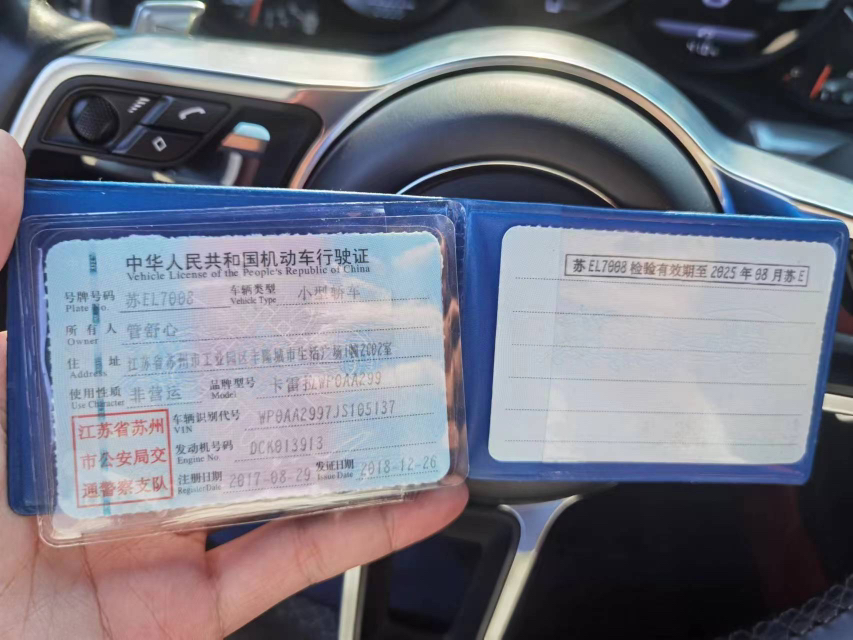 中华人民共和国机动车行驶证
Vehicle License of the People's Republic of China
号牌号码 苏EL7008 车辆类型 小型轿车
Plate No. Vehicle Type
所有人 管舒心
Owner
住址 江苏省苏州市工业园区丰隆城市生活广场1幢2002室
Address
使用性质 非营运 品牌型号 卡雷拉WP0AA299
Use Character Model
江苏省苏州
市公安局交
通警察支队
车辆识别代号 WP0AA2997JS105137
VIN
发动机号码 DCK013913
Engine No.
注册日期 2017-08-29 发证日期 2018-12-26
Register Date Issue Date
苏EL7008 检验有效期至 2025 年 08 月苏E